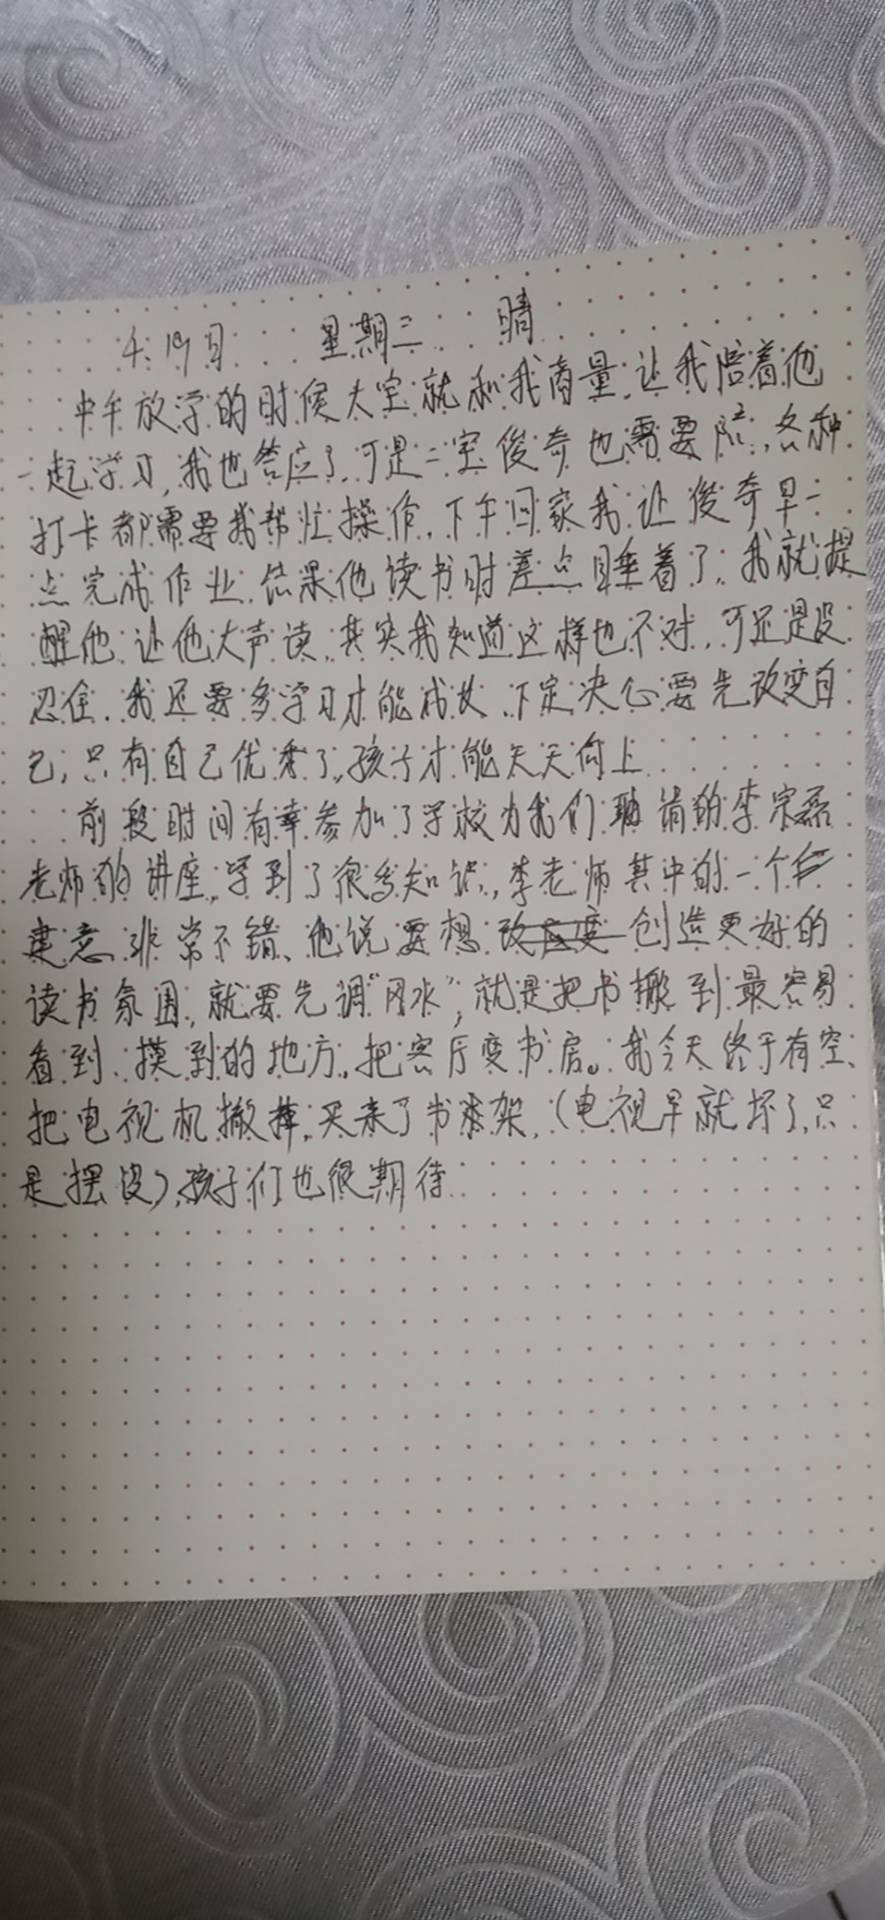 4.19月 星期二 晴
中午放学的时候大宝就和我商量,让我陪着他
一起学习,我也答应了,可是二宝俊奇也需要陪,各种
打卡都需要我帮忙操作,下午回家我让俊奇早一
点完成作业,结果他读书时差点睡着了,我就提
醒他,让他大声读,其实我知道这样也不对,可还是没
忍住,我还要多学习才能成长,下定决心要先改变自
己,只有自己优秀了,孩子才能天天向上
前段时间有幸参加了学校为我们聘请的李宗磊
老师的讲座,学到了很多知识,李老师其中的一个
建意非常不错、他说要想改变创造更好的
读书氛围,就要先调“风水”,就是把书搬到最容易
看到、摸到的地方,把客厅变书房。我今天终于有空、
把电视机撤掉,买来了书架,(电视早就坏了,只
是摆设),孩子们也很期待